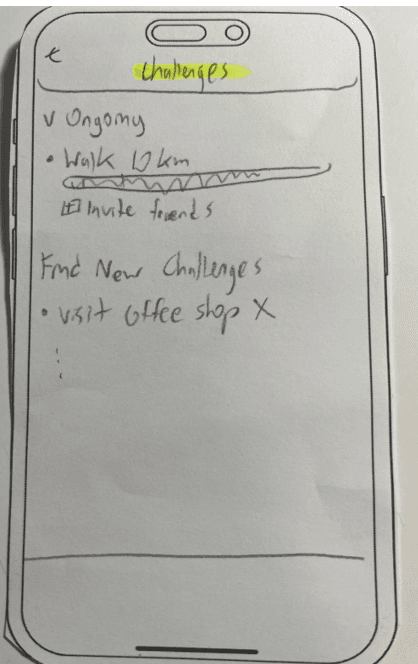 Challenges
v Ongoing
• Walk 10 km
⊞ Invite friends
Find New Challenges
• Visit Coffee shop X